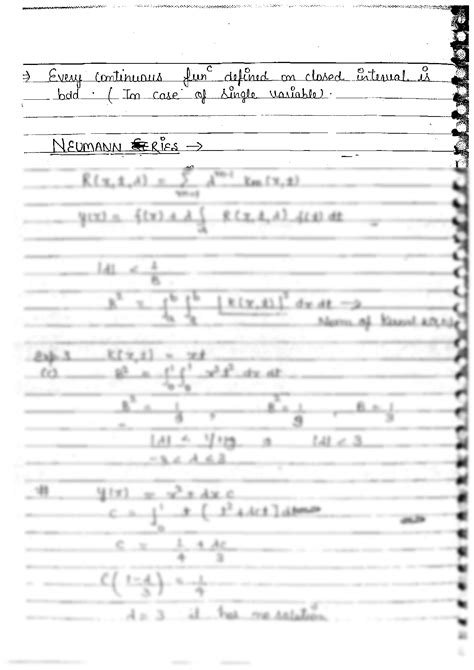 ⇒ Every continuous funᶜ defined on closed interval is
bdd. (In case of single variable).
NEUMANN SERIES →
R(x,t,λ) = ∞ Σ m=1 λ^{m-1} k_m(x,t)
y(x) = f(x) + λ ∫ R(x,t,λ) f(t) dt
|λ| < 1/B
B² = ∫_a^b ∫_a^b |k(x,t)|² dx dt →
Norm of Kernel
Exp 3 K(x,t) = xt
(c) B² = ∫_0^1 ∫_0^1 x²t² dx dt
B² = 1/9, B² = 1/9, B = 1/3
|λ| < |λ| < 3
-3 < λ < 3
# y(x) = x² + λx c
C = ∫_0^1 t [t² + λct] dt
C = 1/4 + λc/3
C(1-λ/3) = 1/4
λ = 3 it has no solution